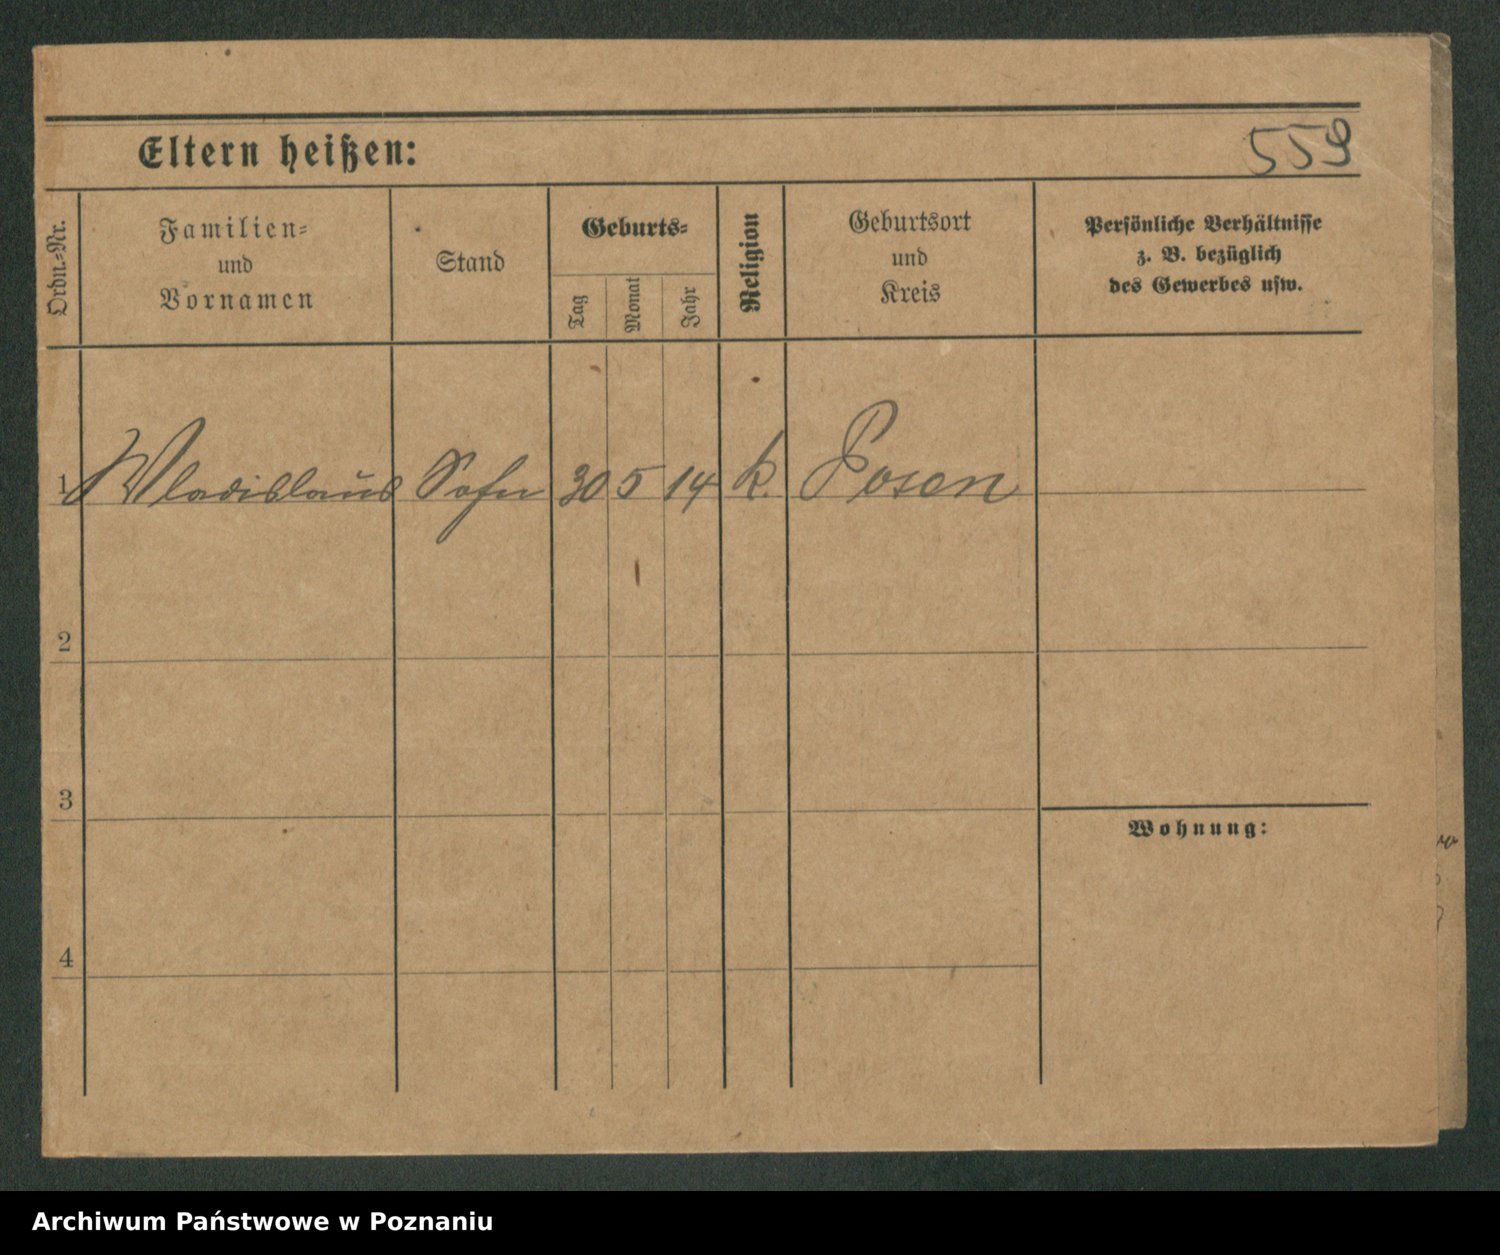 Eltern heißen:
559
Ordn.-Nr.
Familien-
und
Vornamen
Stand
Geburts-
Tag
Monat
Jahr
Religion
Geburtsort
und
Kreis
Persönliche Verhältnisse
z. B. bezüglich
des Gewerbes usw.
1 Wladislaus Sohn 30 5 14 k. Posen
2
3
Wohnung:
4
Archiwum Państwowe w Poznaniu